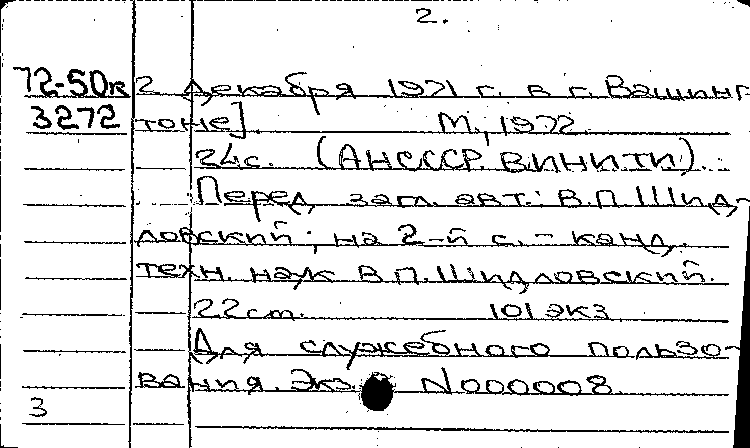 2.
72-50к 2 декабря 1971 г. в г. Вашинг-
3272 тоне]. М., 1972.
24с. (АНСССР. ВИНИТИ).
Перед загл. авт.: В.П.Шид-
ловский; на 2-й с. - канд.
техн. наук В.П.Шидловский.
22см. 101 экз
Для служебного пользо-
вания. Экз. N000008
3